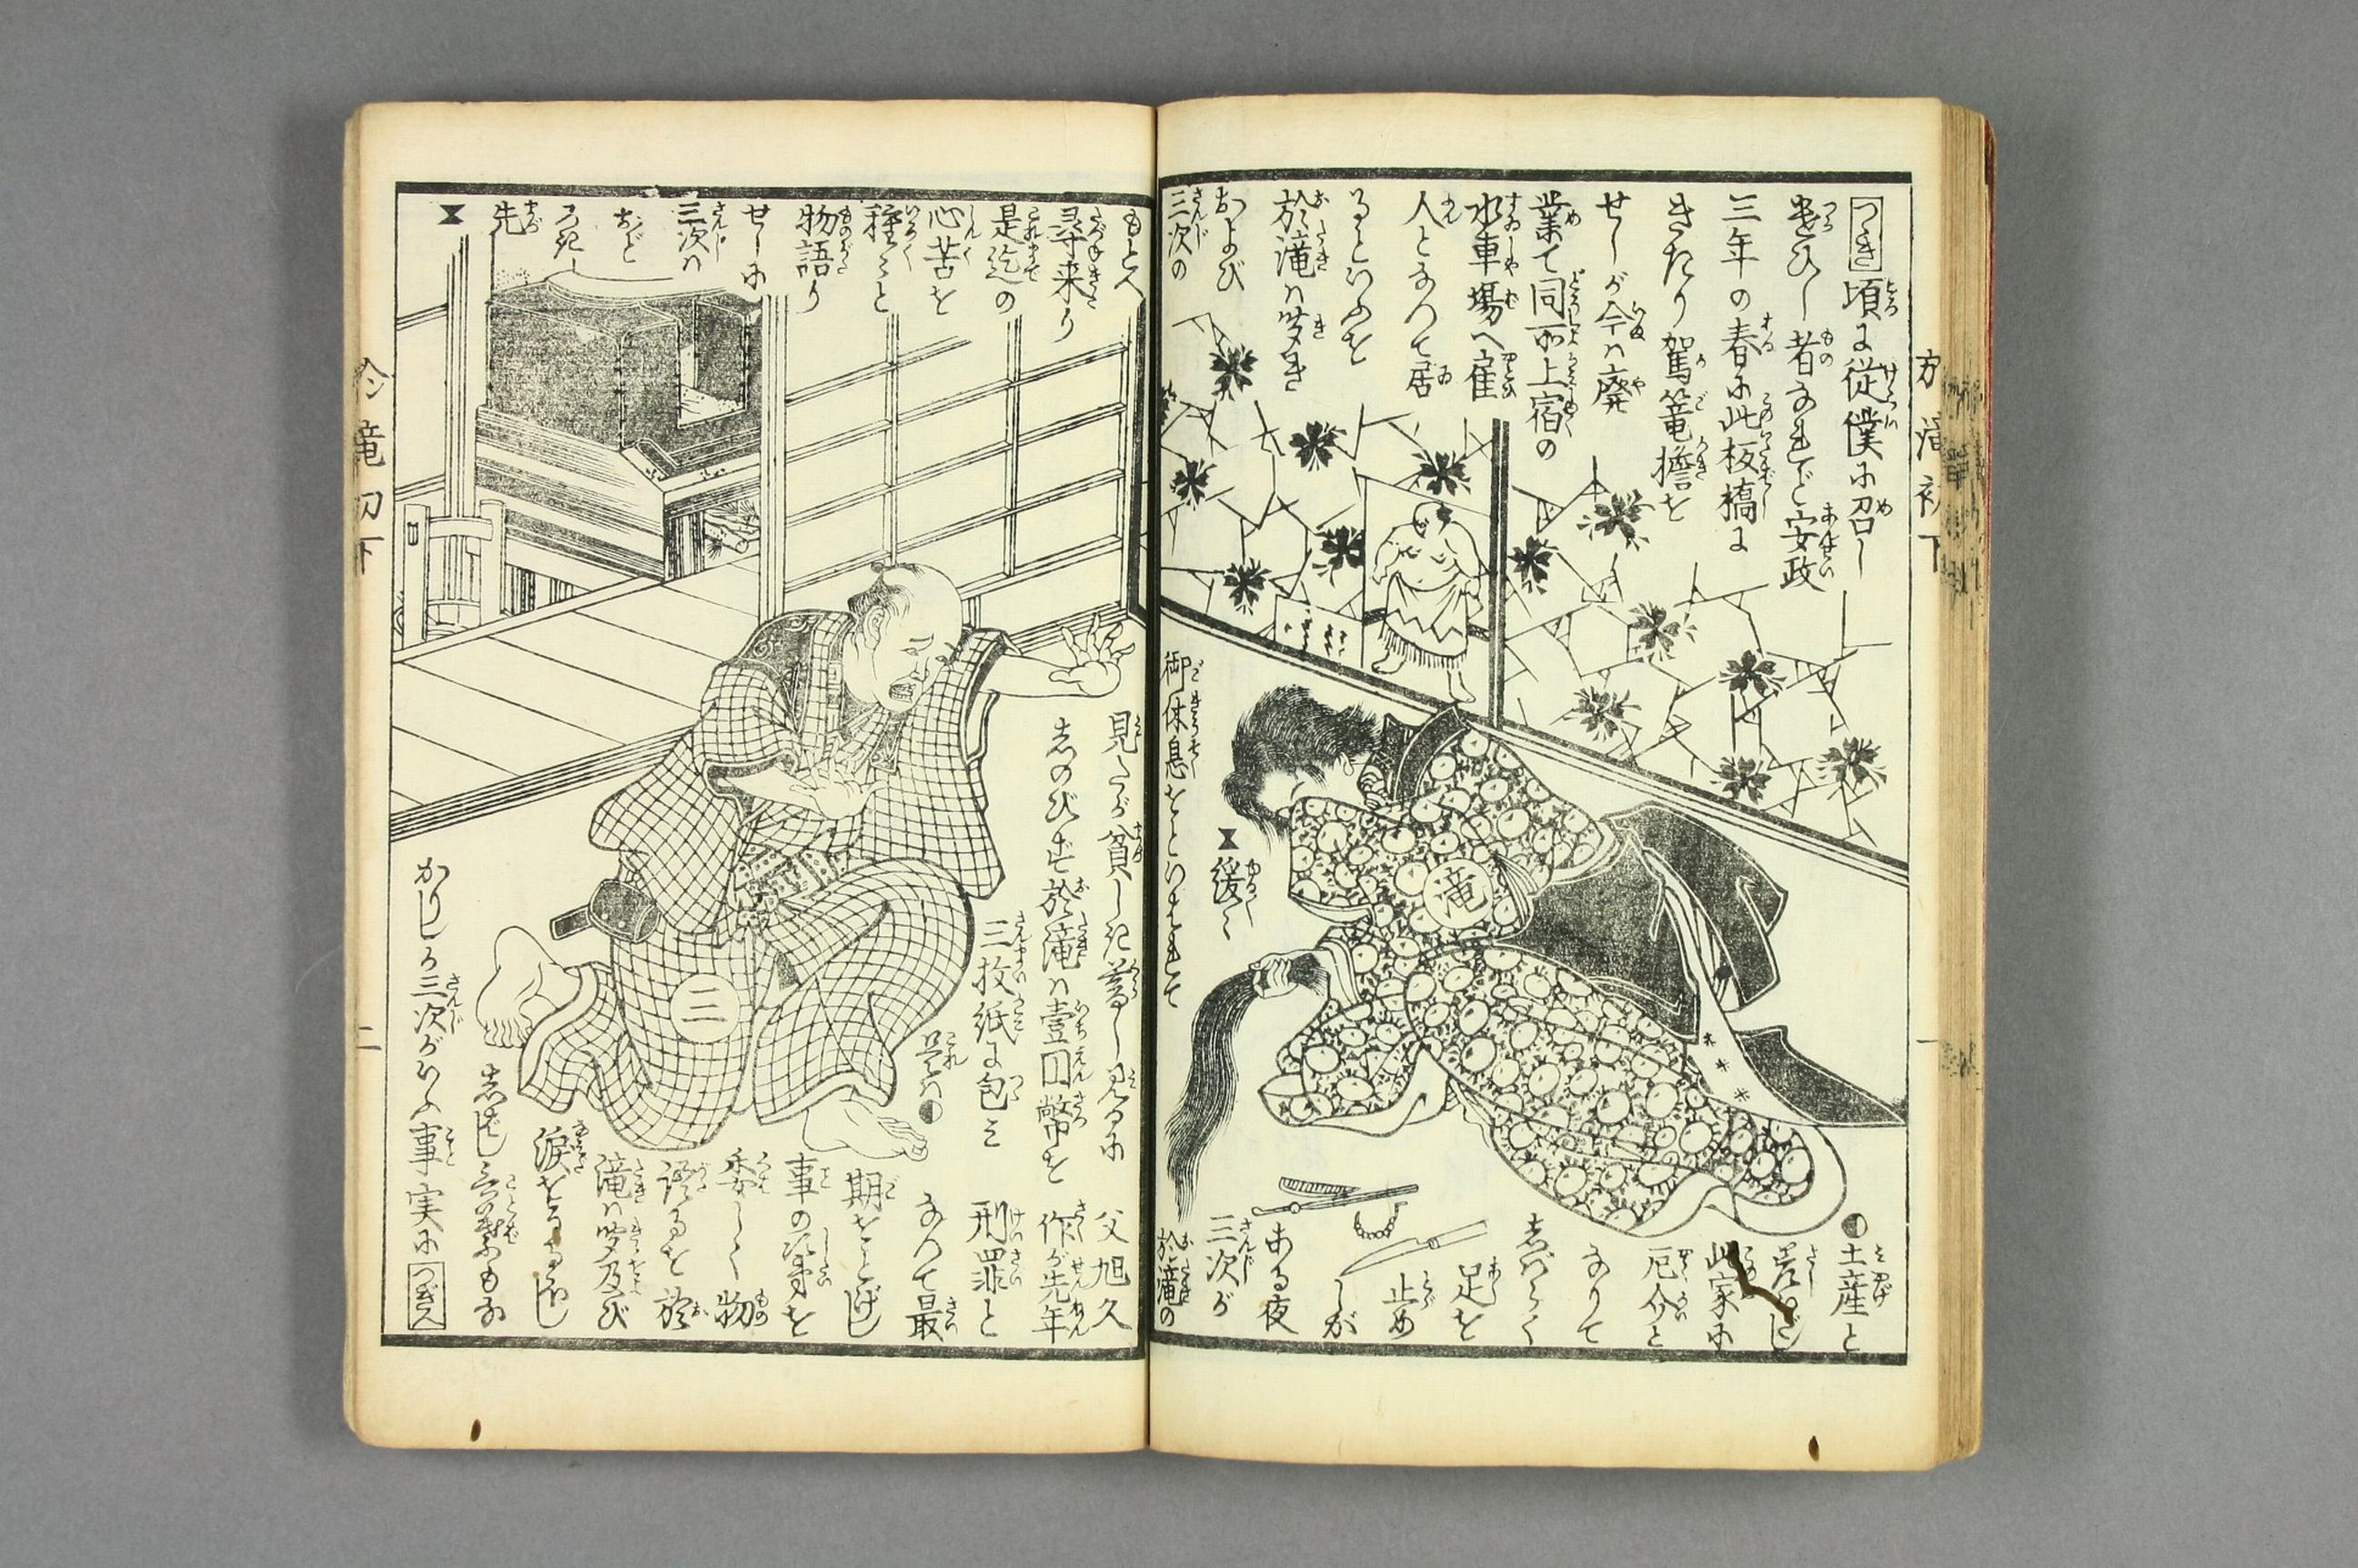 つゞき 頃に従僕に召し
遣ひし者なれど安政
三年の春に此板橋に
きたり駕篭擔を
せしが今は廃
業て同所上宿の
水車場へ雇
人となつて居
るといふを
於滝は聞き
および
三次の
もとへ
尋来り
是迄の
心苦を
種々と
物語り
せしに
三次は
おど
ろき
先
緩々
御休息をといはれて
於滝の
見るが貧しき暮し見るに
しのびず於滝は壹円幣を
三枚紙に包み
是は
土産と
差出し
此家に
厄介と
なりて
しばらく
足を
止め
しが
ある夜
三次が
父旭久
作が先年
刑罪と
なつて最
期をとげし
事の次第を
委しく物
語るを於
滝は聞及び
涙をながし
しばし言葉もな
かりしが三次がいふ事実に つぎへ
滝
三
於滝初下
一
於滝初下
二